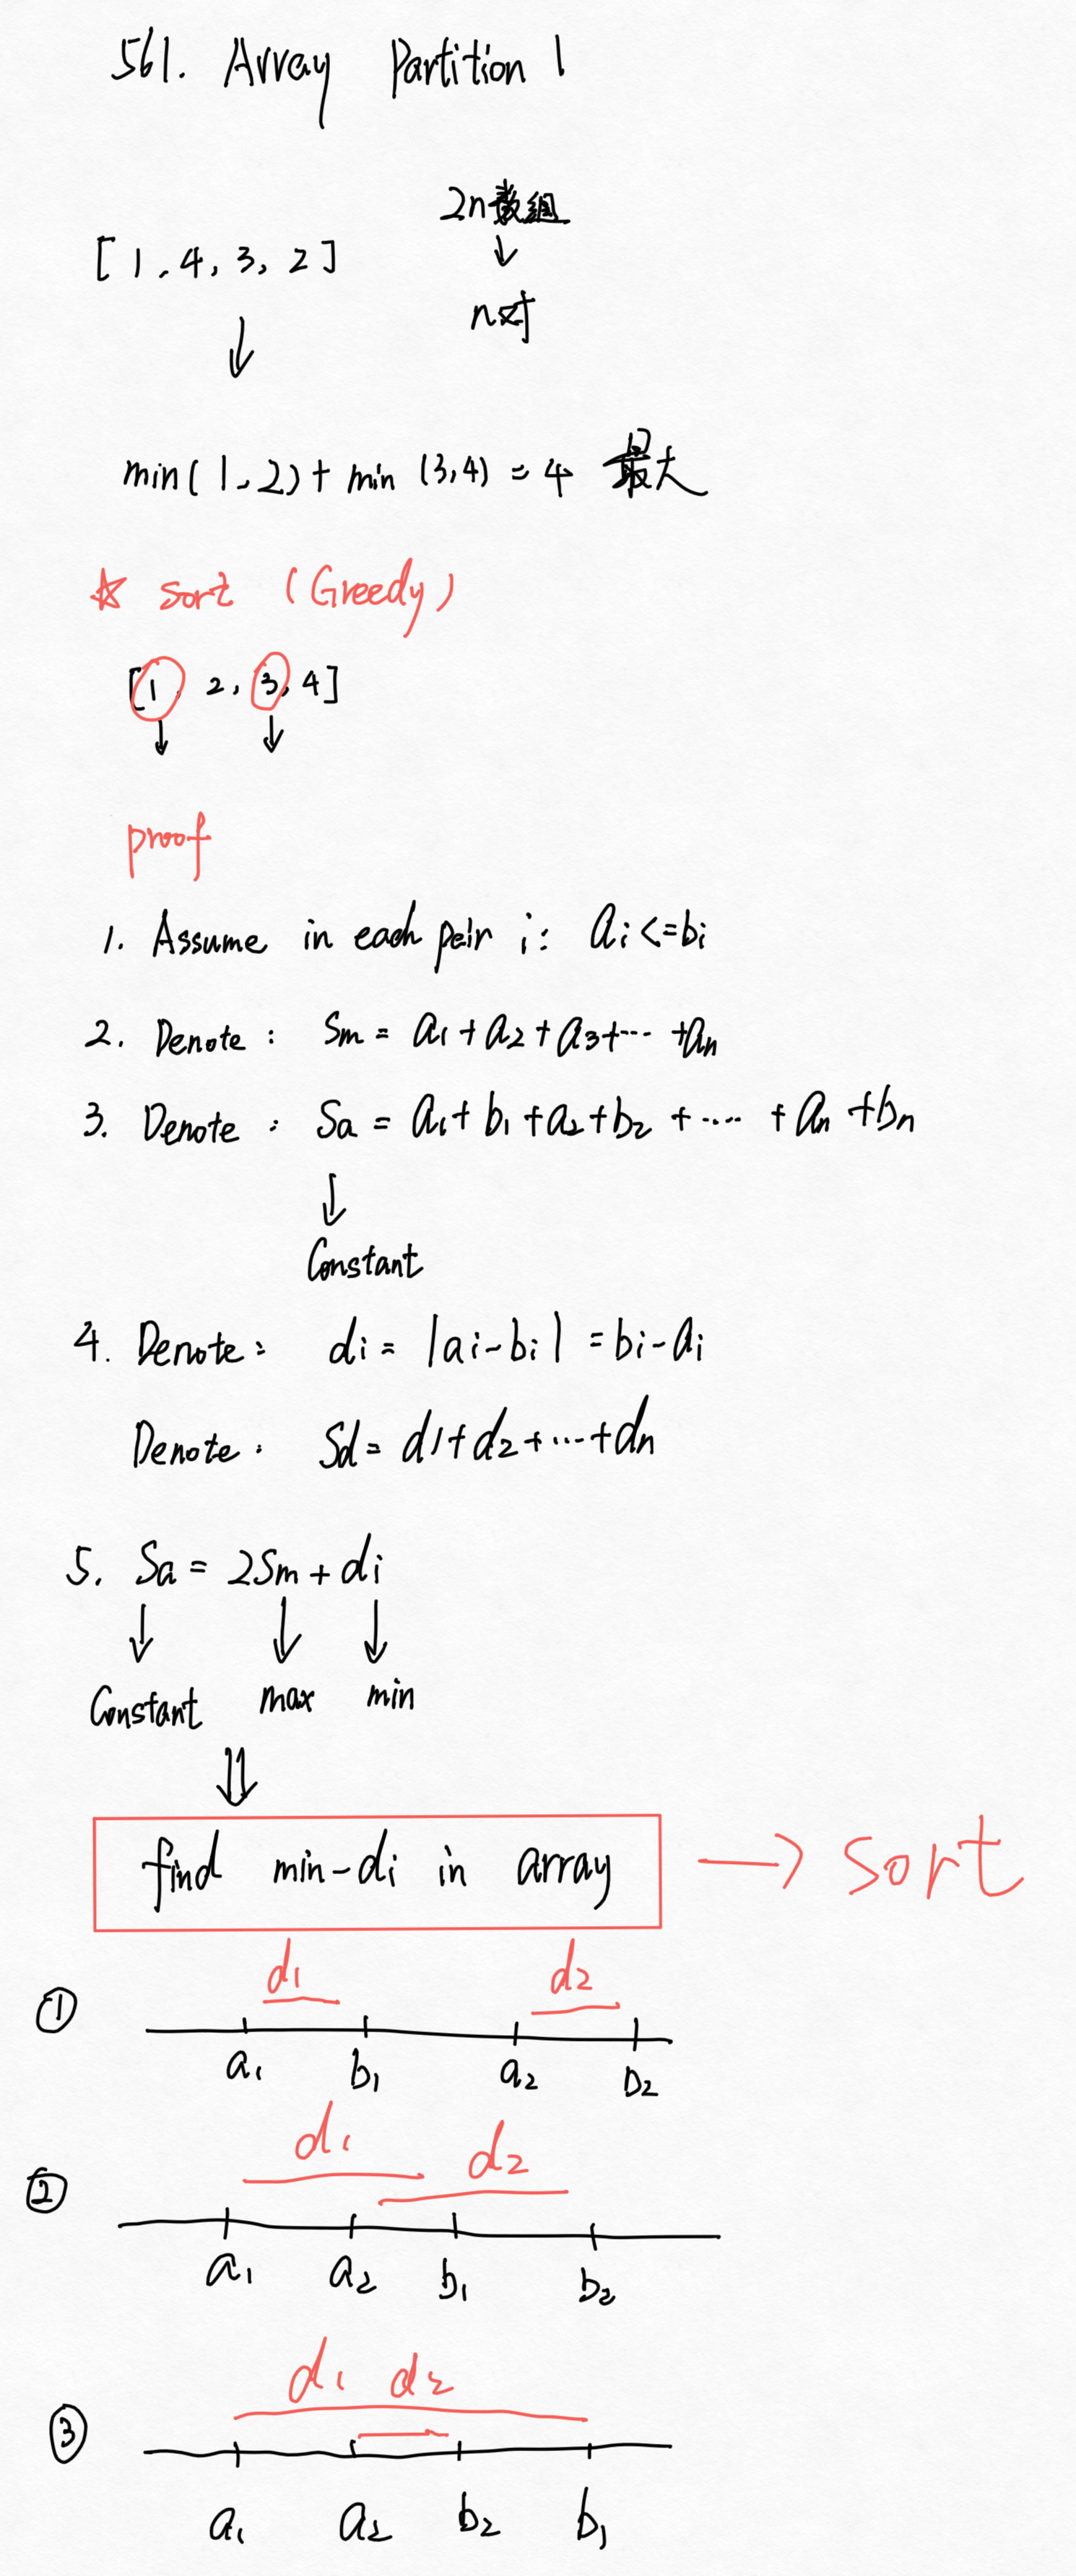 561. Array Partition 1
2n数组
↓
[1, 4, 3, 2]
n对
↓
min(1,2)+min(3,4)=4 最大
☆ sort (Greedy)
[1, 2, 3, 4]
↓ ↓
proof
1. Assume in each pair i: ai<=bi
2. Denote: Sm = a1+a2+a3+···+an
3. Denote: Sa = a1+b1+a2+b2+····+an+bn
↓
Constant
4. Denote: di = |ai-bi| = bi-ai
Denote: Sd = d1+d2+···+dn
5. Sa = 2Sm+di
↓ ↓ ↓
Constant max min
⇓
find min-di in array → Sort
d1 d2
①
a1 b1 a2 b2
d1 d2
②
a1 a2 b1 b2
d1 d2
③
a1 a2 b2 b1